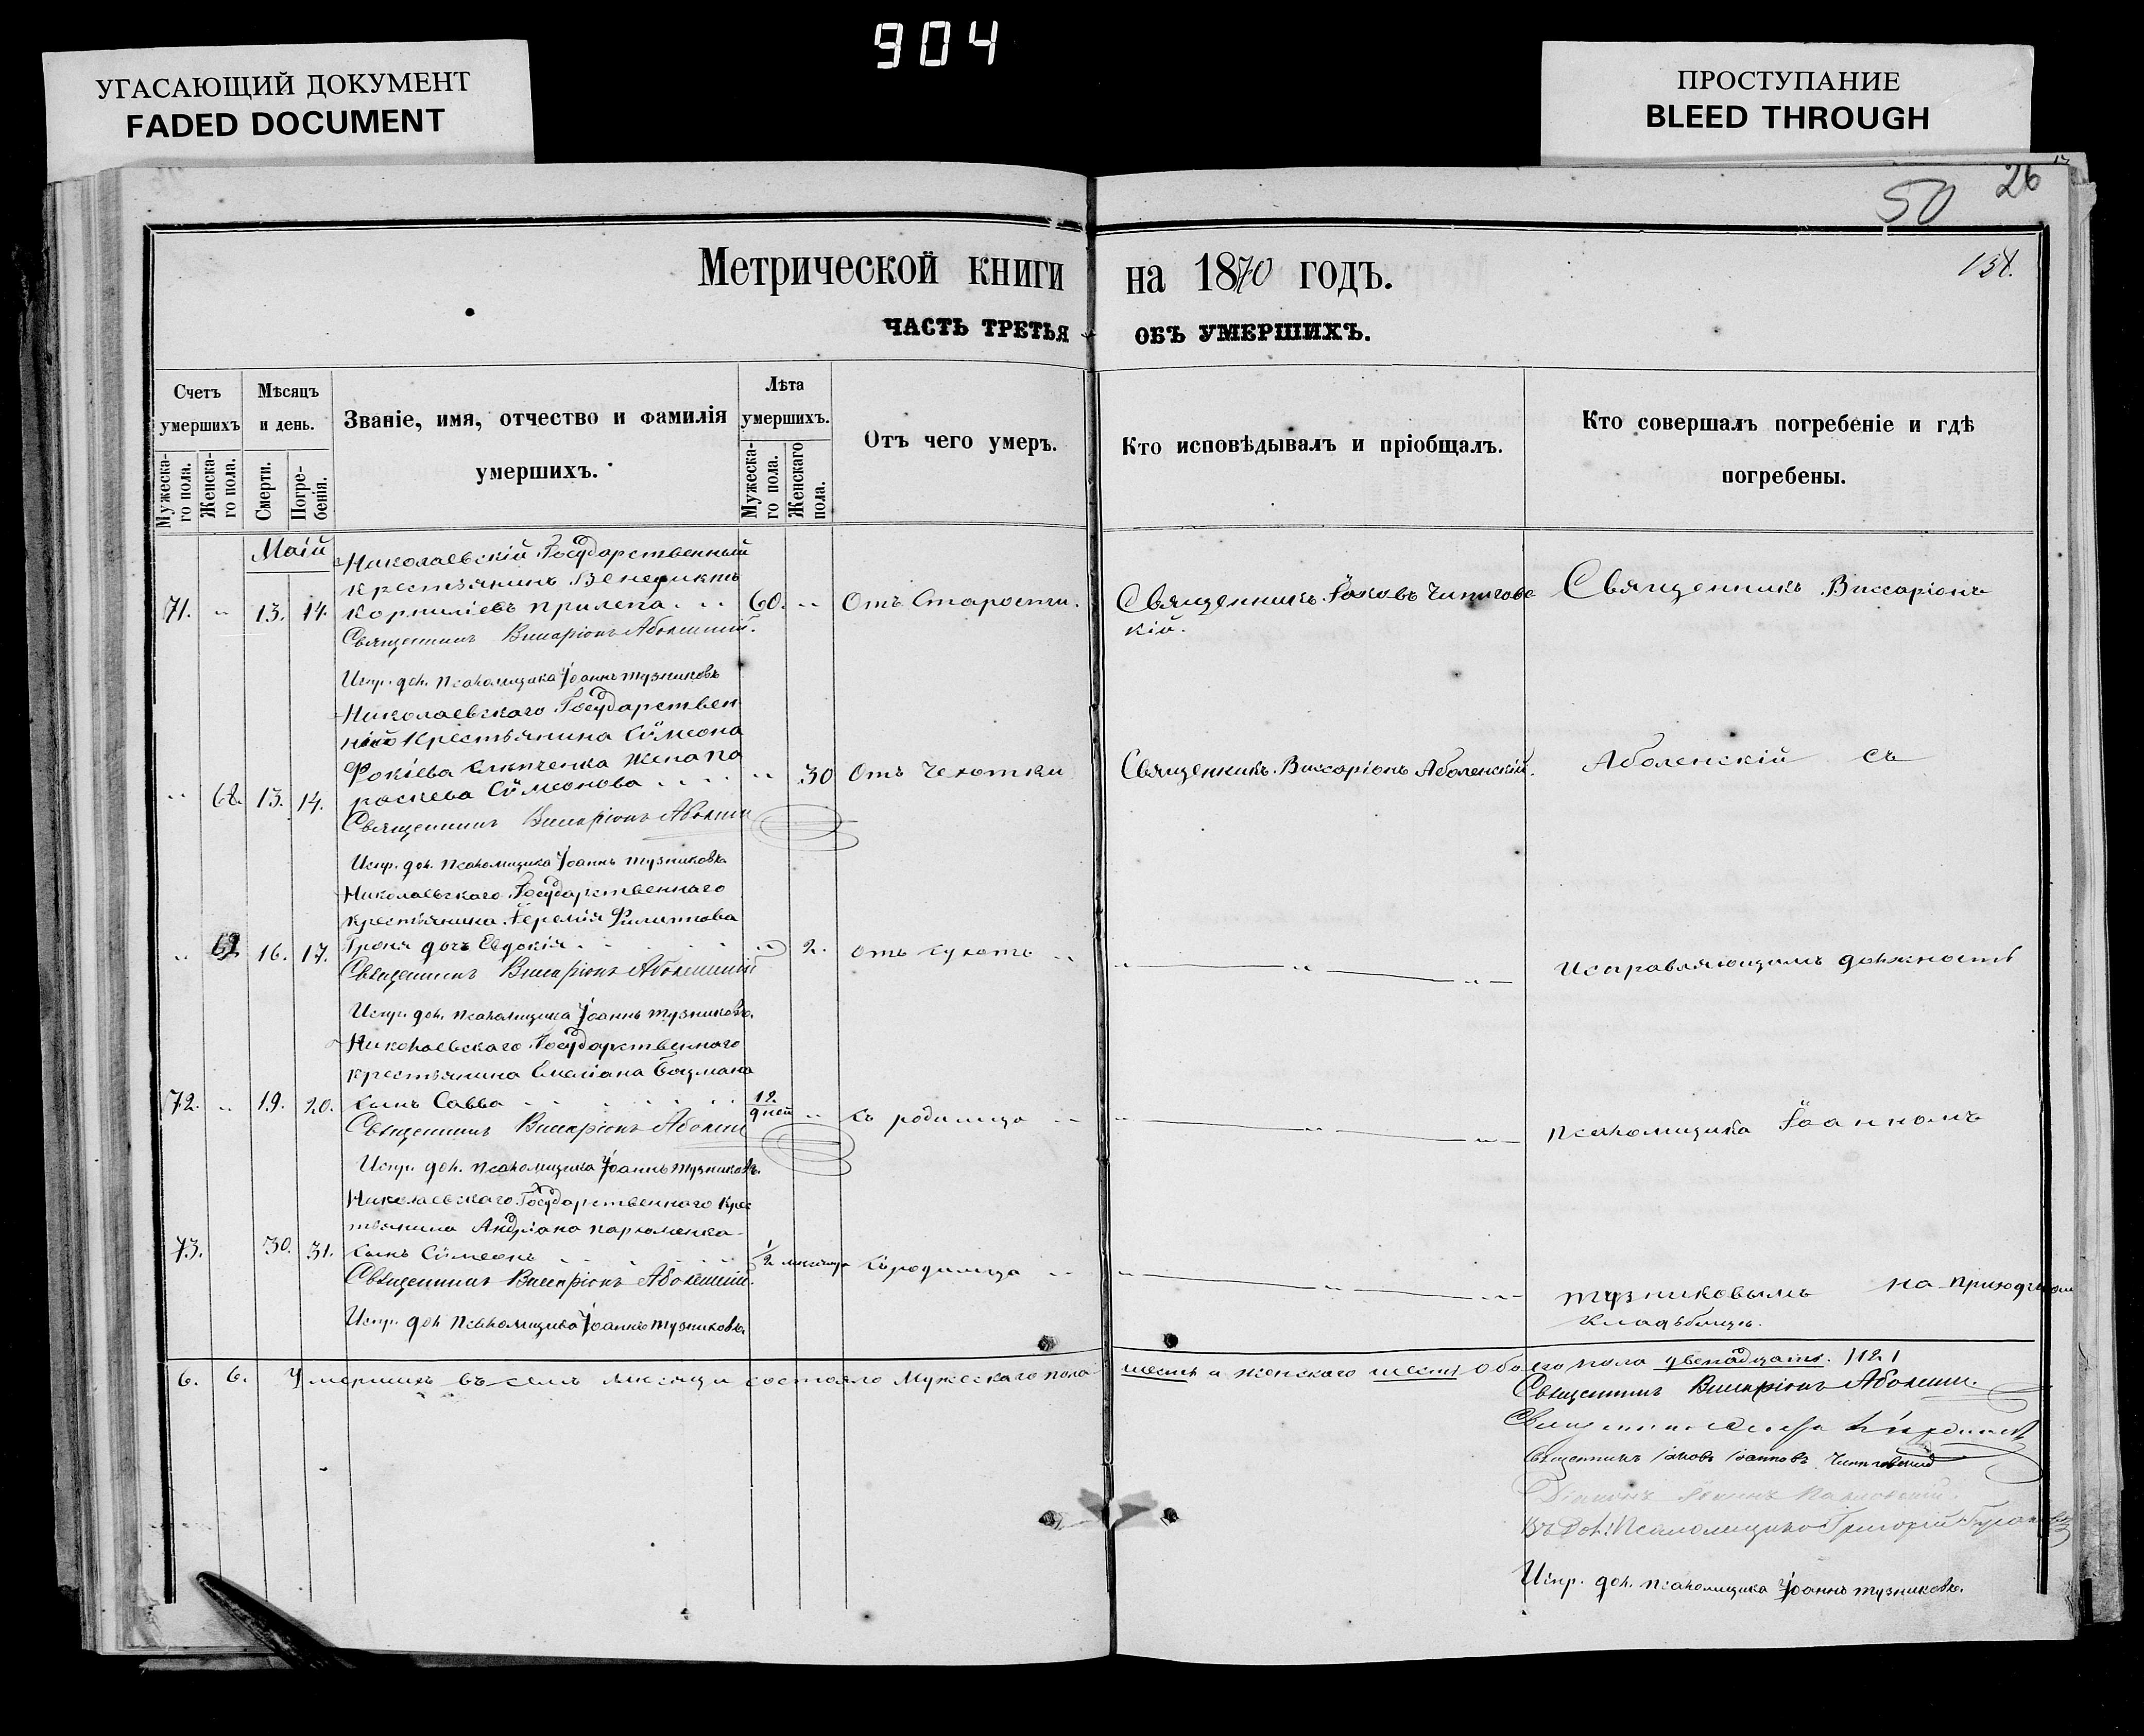 904
УГАСАЮЩИЙ ДОКУМЕНТ
FADED DOCUMENT
ПРОСТУПАНИЕ
BLEED THROUGH
26
50
Метрической книги на 1870 годъ.
ЧАСТЬ ТРЕТЬЯ ОБЪ УМЕРШИХЪ.
Счетъ умершихъ
Мужеска-го пола.
Женска-го пола.
Мѣсяцъ и день.
Смерти.
Погре-бенія.
Званіе, имя, отчество и фамилія умершихъ.
Лѣта умершихъ.
Мужеска-го пола.
Женскаго пола.
Отъ чего умеръ.
Кто исповѣдывалъ и пріобщалъ.
Кто совершалъ погребеніе и гдѣ погребены.
Маій
Николаевскій Государственный
крестьянинъ Венедиктъ
71. " 13. 14. Корниліевъ Прилепа . . . 60. " Отъ Старости. Священникъ Іаковъ Чипигов
скій. Священникъ Виссаріонъ
Священникъ Виссаріонъ Аболенскій.
Испр. дол. псаломщика Іоаннъ Тузниковъ
Николаевскаго Государствен
наго Крестьянина Сѵмеона
Фокіева Слипченка жена Па
" 68. 13. 14. раскева Сѵмеонова . . . . " 30 Отъ Чехотки Священникъ Виссаріонъ Аболенскій. Аболенскій съ
Священникъ Виссаріонъ Аболенск
Испр. дол. псаломщика Іоаннъ Тузниковъ
Николаевскаго Государственнаго
крестьянина Іереміи Филиппова
" 69 16. 17. дочь Евдокія . . . . " 2. Отъ сухотъ " " " " Исправляющимъ должность
Священникъ Виссаріонъ Аболенскій
Испр. дол. псаломщика Іоаннъ Тузниковъ.
Николаевскаго Государственнаго
крестьянина Емеліана Боцмана
72. " 19. 20. сынъ Савва . . . . . 12. дней " Съ родимца " " " " псаломщика Іоанномъ
Священникъ Виссаріонъ Аболенс
Испр. дол. псаломщика Іоаннъ Тузниковъ.
Николаевскаго Государственнаго Крес
тьянина Андріана Пархоменка
73. 30. 31. сынъ Сѵмеонъ . . . . 1/2 мѣсяца Съ родимца " " " " Тузниковымъ на приходском
кладбищѣ.
Священникъ Виссаріонъ Аболенскій.
Испр. дол псаломщика Іоаннъ Тузниковъ.
6. 6. Умершихъ въ семъ мѣсяцѣ состояло Мужескаго пола шесть а женскаго шесть обоего пола двенадцать. /12/
Священникъ Виссаріонъ Аболенск.
Священникъ Іаковъ Іоанновъ Чипиговскій
Діаконъ Іоаннъ Павловскій.
Въ дол: Псаломщика Григорій
Испр. дол. псаломщика Іоаннъ Тузниковъ.